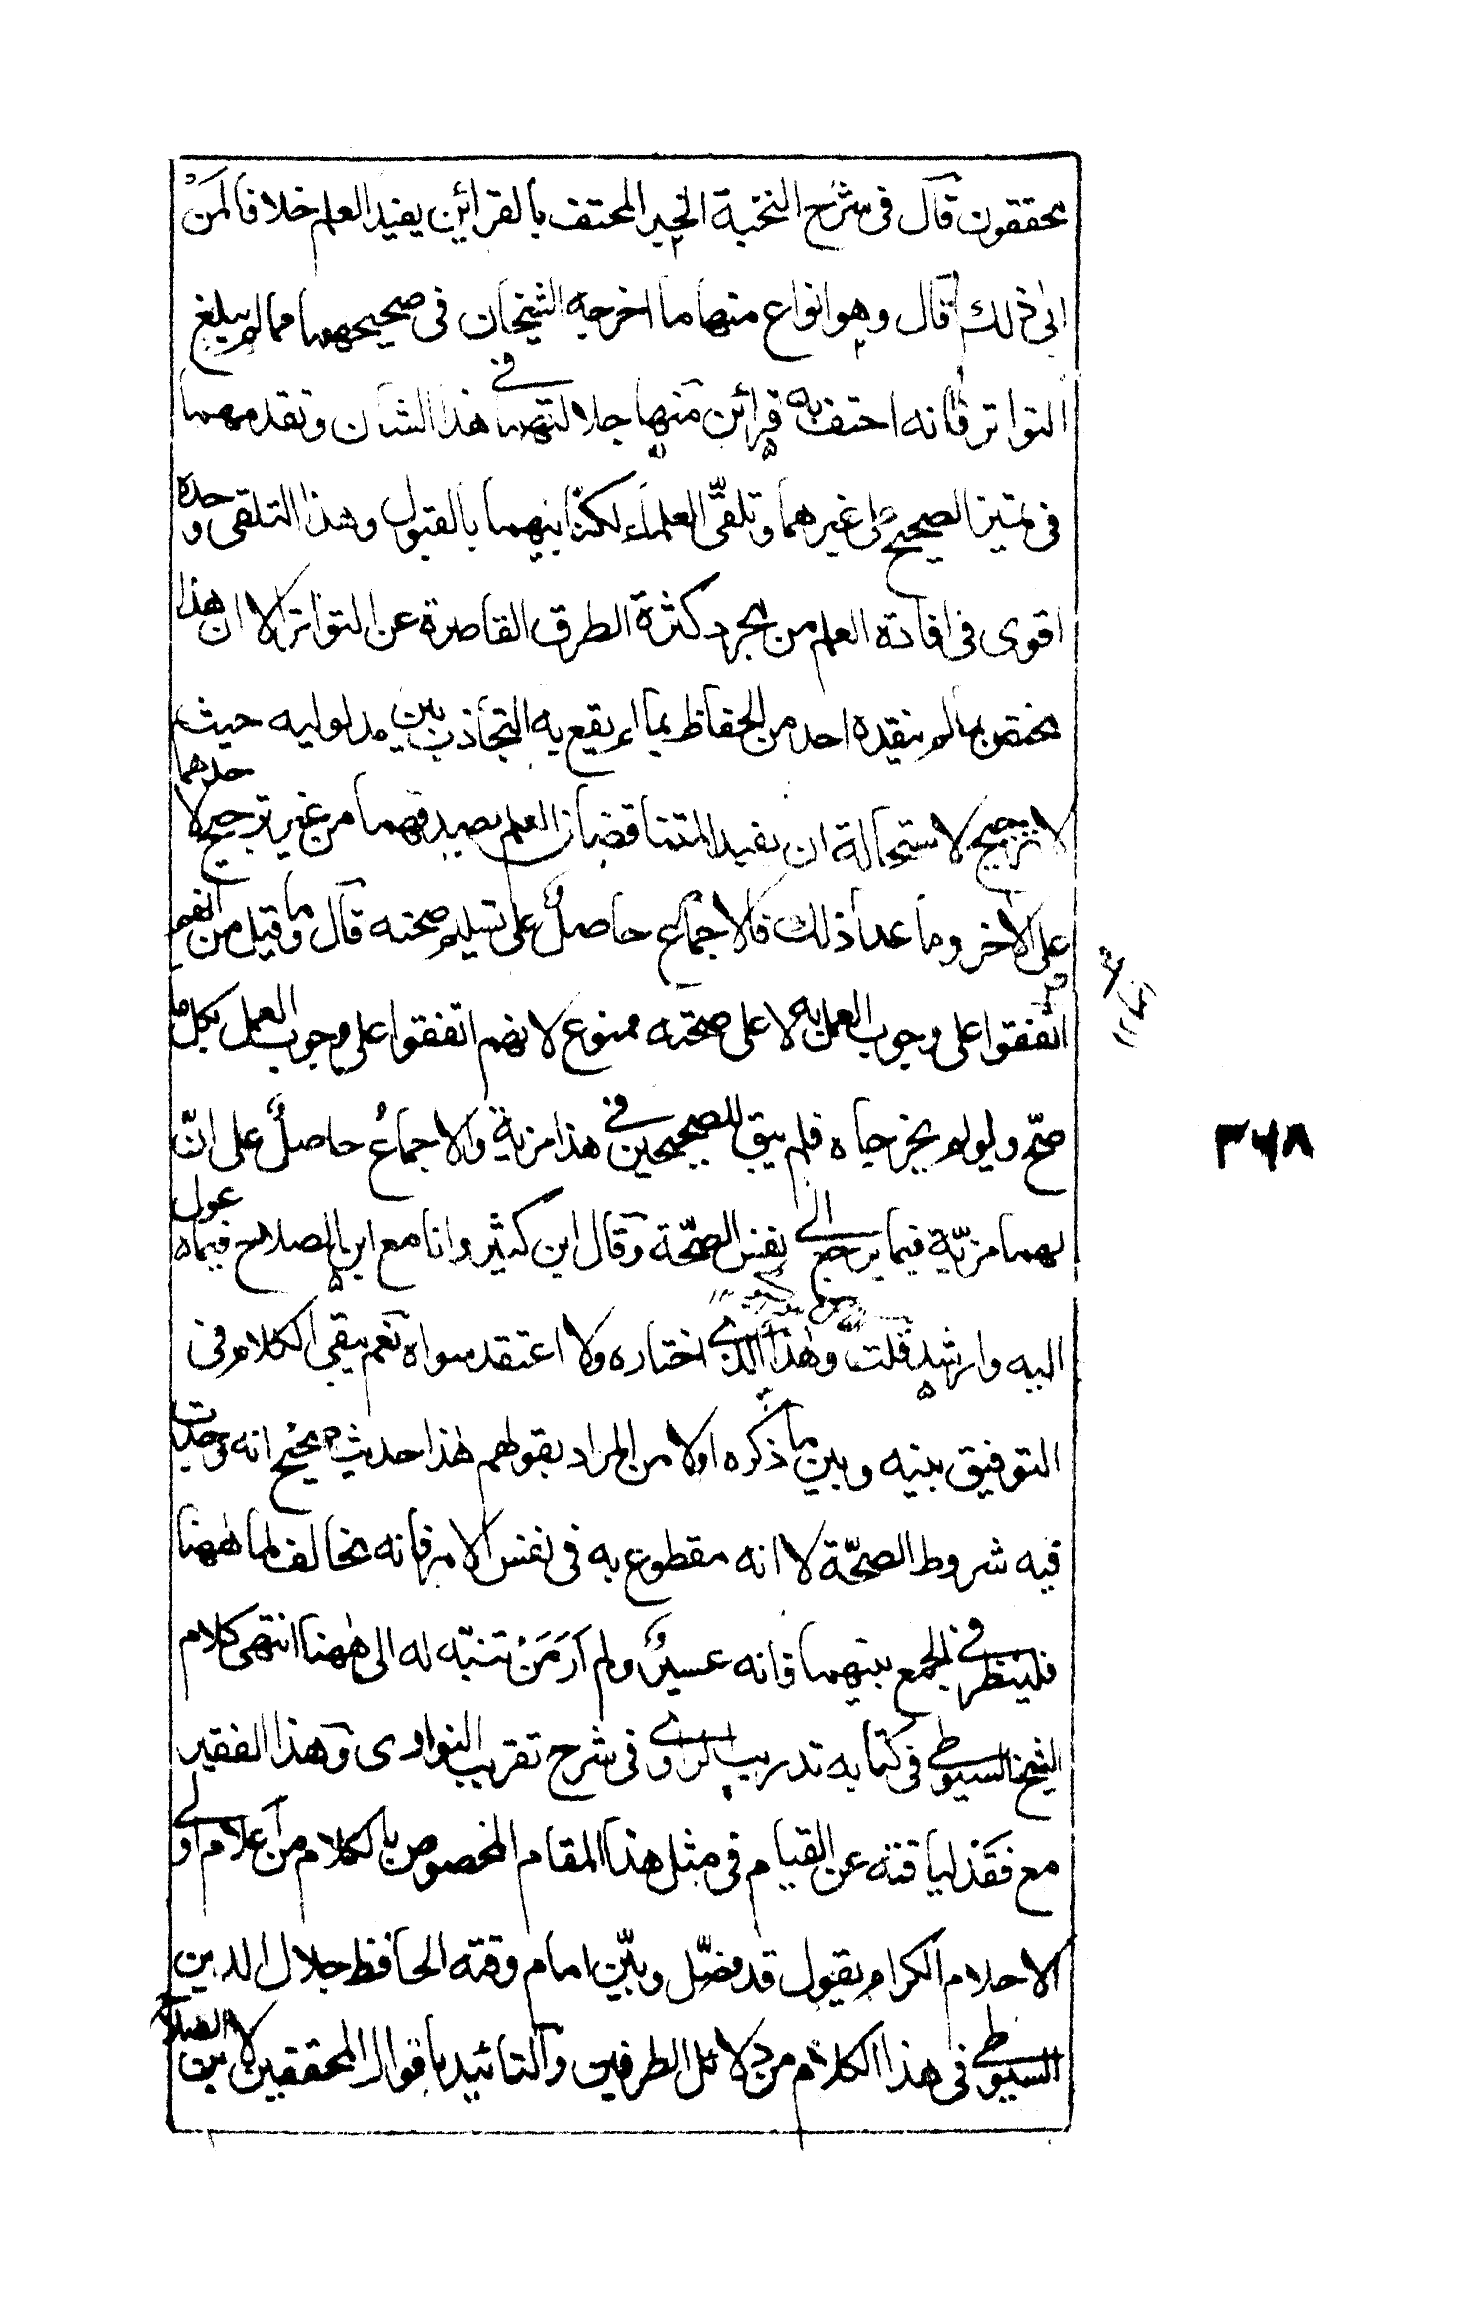 محققون قال فى شرح النخبة الخبر المحتف بالقرائن يفيد العلم خلافا لمن
ابى ذلك قال وهو انواع منها ما اخرجه الشيخان فى صحيحهما مما لم يبلغ
التواتر فانه احتف به قرائن منها جلالتهما فى هذا الشان وتقدمهما
فى تميز الصحيح على غيرهما وتلقّى العلماء لكتابيهما بالقبول وهذا التلقى وحده
اقوى فى افادة العلم من مجرد كثرة الطرق القاصرة عن التواتر الا ان هذا
يختص بما لم ينقده احد من الحفاظ بما لم يقع به التجاذب بين مدلوليه حيث
لا ترجيح لاستحالة ان يفيد المتناقضان العلم بصدقهما من غير ترجيح لاحدهما
على الاخر وما عدا ذلك فالاجماع حاصلٌ على تسليم صحته قال وما قيل من انهم
اتفقوا على وجوب العمل به لا على صحته ممنوع لانهم اتفقوا على وجوب العمل بكل ما
صحّ ولو لم يخرجاه فلم يبق للصحيحين فى هذا مزية والاجماعُ حاصلٌ على انّ
لهما مزيّة فيما يرجع الى نفس الصحّة وقال ابن كثير وانا مع ابن الصلاح فيما عول
اليه وارشد قلت وهذا الذى اختاره ولا اعتقد سواه نعم يبقى الكلام فى
التوفيق بينه وبين ما ذكره اولا من المراد بقولهم هذا حديث صحيح انه وجدت
فيه شروط الصحّة لا انه مقطوع به فى نفس الامر فانه مخالف لما ههنا
فلينظر فى الجمع بينهما فانه عسيرٌ ولم اَرَ مَنْ تنبّه له الى ههنا انتهى كلام
الشيخ السيوطى فى كتابه تدريب الراوى فى شرح تقريب النواوى وهذا الفقير
مع فقد لياقته عن القيام فى مثل هذا المقام المخصوص بالكلام من اعلام اولى
الاحلام الكرام يقول قد فصّل وبيّن امام وقته الحافظ جلال الدين
السيوطى فى هذا الكلام من دلائل الطرفين والتائيد باقوال المحققين لابن الصلاح
٣٦٨